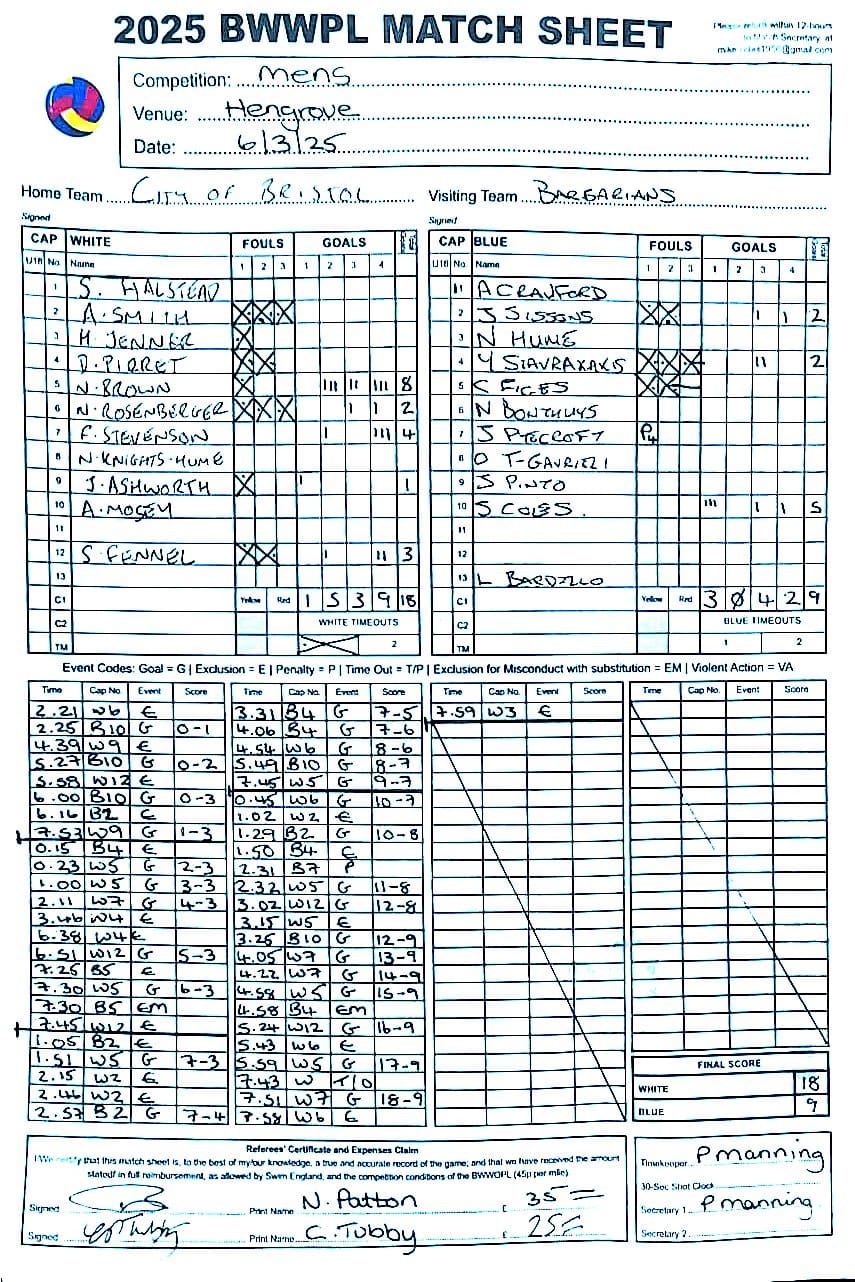 2025 BWWPL MATCH SHEET
Please return within 12 hours
Competition: Mens
Venue: Hengrove
Date: 6/3/25
Home Team CITY OF BRISTOL
Visiting Team BARBARIANS
Signed
Signed
CAP WHITE FOULS GOALS
U18 No. Name 1 2 3 1 2 3 4
1 S. HALSTEAD
2 A. SMITH X X X
3 H. JENNER X
4 D. PIRRET X X
5 N. BROWN X III II III 8
6 N. ROSENBERGER X X X I I 2
7 F. STEVENSON I III 4
8 N. KNIGHTS-HUME
9 J. ASHWORTH X I 1
10 A. MOGEY
11
12 S. FENNEL X X I II 3
13
C1 Yellow Red 1 5 3 9 18
C2 WHITE TIMEOUTS
TM 2
CAP BLUE FOULS GOALS
U18 No. Name 1 2 3 1 2 3 4
1 A CRAUFORD
2 J SISSONS X X I I 2
3 N HUME
4 Y STAVRAKAKIS X X X II 2
5 C FIGES X X
6 N BONTHUYS
7 J PYECROFT P4
8 O T-GAVRIEZI
9 J PINTO
10 S COLES. III I I 5
11
12
13 L BARDZLLO
C1 Yellow Red 3 0 4 2 9
C2 BLUE TIMEOUTS
TM 1 2
Event Codes: Goal = G | Exclusion = E | Penalty = P | Time Out = T/P | Exclusion for Misconduct with substitution = EM | Violent Action = VA
Time Cap No. Event Score
2.21 W6 E
2.25 B10 G 0-1
4.39 W9 E
5.27 B10 G 0-2
5.58 W12 E
6.00 B10 G 0-3
6.16 B2 E
7.53 W9 G 1-3
0.15 B4 E
0.23 W5 G 2-3
1.00 W5 G 3-3
2.11 W7 G 4-3
3.46 W4 E
6.38 W4 E
6.51 W12 G 5-3
7.25 B5 E
7.30 W5 G 6-3
7.30 B5 EM
7.45 W12 E
1.05 B2 E
1.51 W5 G 7-3
2.15 W2 E
2.46 W2 E
2.57 B2 G 7-4
Time Cap No. Event Score
3.31 B4 G 7-5
4.06 B4 G 7-6
4.54 W6 G 8-6
5.49 B10 G 8-7
7.45 W5 G 9-7
0.45 W6 G 10-7
1.02 W2 E
1.29 B2 G 10-8
1.50 B4 E
2.31 B7 P
2.32 W5 G 11-8
3.02 W12 G 12-8
3.15 W5 E
3.26 B10 G 12-9
4.05 W7 G 13-9
4.22 W7 G 14-9
4.58 W5 G 15-9
4.58 B4 EM
5.24 W12 G 16-9
5.43 W6 E
5.59 W5 G 17-9
7.43 W T/O
7.51 W7 G 18-9
7.58 W6 E
Time Cap No. Event Score
7.59 W3 E
Time Cap No. Event Score
FINAL SCORE
WHITE 18
BLUE 9
Referees' Certificate and Expenses Claim
I/We certify that this match sheet is, to the best of my/our knowledge, a true and accurate record of the game; and that we have received the amount
stated/ in full reimbursement, as allowed by Swim England, and the competition conditions of the BWWOPL (45p per mile)
Signed Print Name N. Patton £ 35 =
Signed Print Name C. Tubby £ 25 =
Timekeeper P Manning
30-Sec Shot Clock
Secretary 1 P Manning
Secretary 2